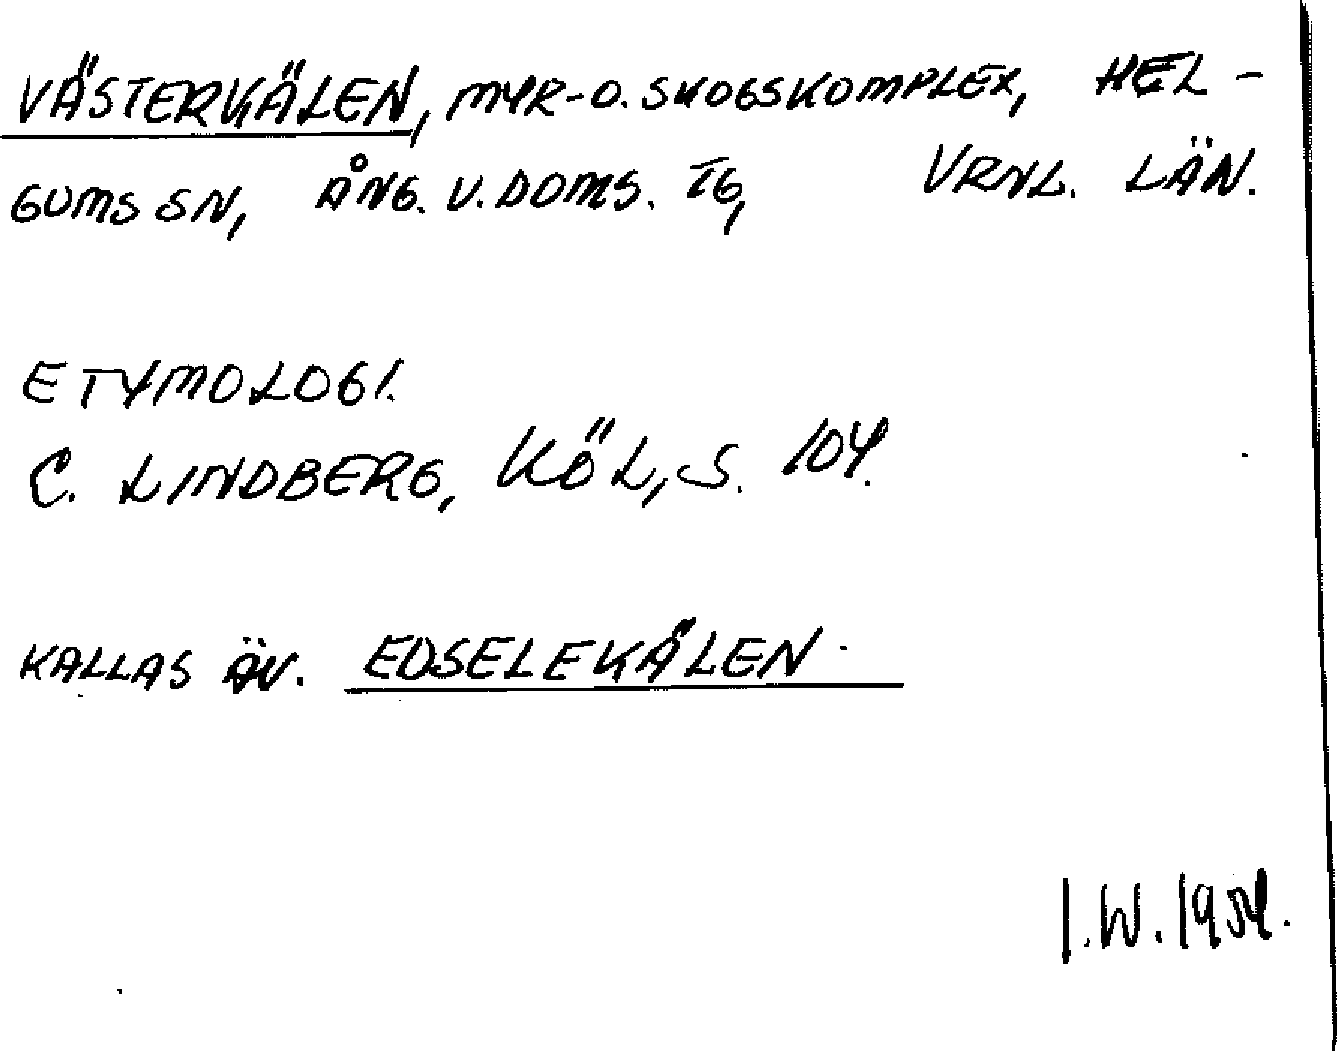 VÄSTERKÄLEN, MYR-O. SKOGSKOMPLEX, HEL-
GUMS SN, ÅNG. V. DOMS. TG, VRNL. LÄN.
ETYMOLOGI.
C. LINDBERG, KÖL, S. 104.
KALLAS ÄV. EDSELEKÄLEN.
I.W. 1954.